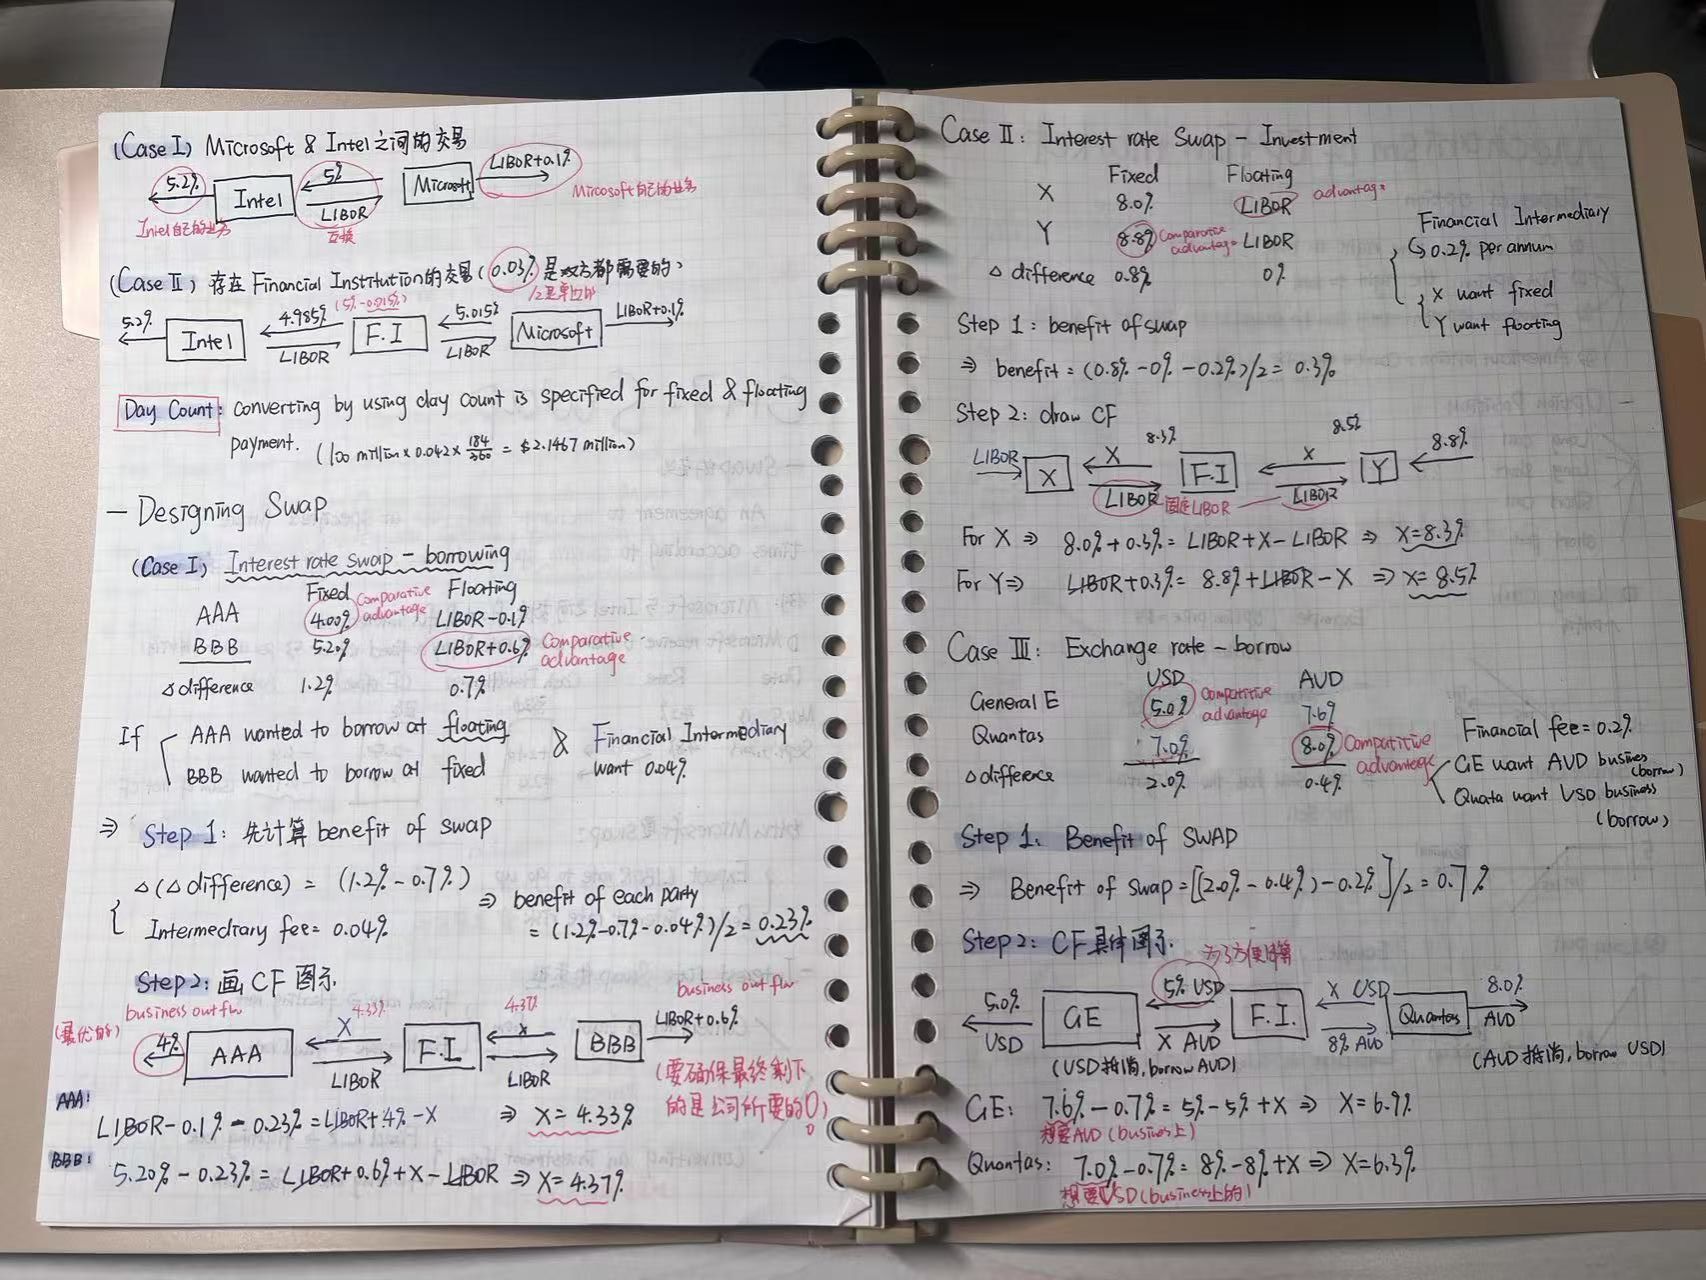 (Case I) Microsoft & Intel之间的交易
5.2% Intel 5% LIBOR Microsoft LIBOR+0.1%
Intel自己的业务 互换 Mircosoft自己的业务
(Case II) 存在 Financial Institution的交易(0.03%是双方都需要的)
(5%-0.015%) /2是单边的
5.2% Intel 4.985% LIBOR F.I 5.015% LIBOR Microsoft LIBOR+0.1%
Day Count: converting by using day count is specified for fixed & floating
payment. (100 million × 0.042 × 184/360 = $2.1467 million)
— Designing Swap
(Case I) Interest rate swap - borrowing
Fixed Floating
AAA 4.00% Comparative advantage LIBOR-0.1%
BBB 5.20% LIBOR+0.6% Comparative advantage
Δ difference 1.2% 0.7%
If AAA wanted to borrow at floating & Financial Intermediary
BBB wanted to borrow at fixed want 0.04%
⇒ Step 1: 先计算 benefit of swap
Δ(Δ difference) = (1.2% - 0.7%) ⇒ benefit of each party
Intermediary fee = 0.04% = (1.2%-0.7%-0.04%)/2 = 0.23%
Step2: 画 CF 图示
business outflow 4.33% 4.37% business outflow
(最优的) 4% AAA X LIBOR F.I x LIBOR BBB LIBOR+0.6%
(要确保最终剩下
的是公司所要的)
AAA:
LIBOR-0.1% - 0.23% = LIBOR+4% -X ⇒ X = 4.33%
BBB:
5.20% - 0.23% = LIBOR+0.6%+X-LIBOR ⇒ X = 4.37%
Case II: Interest rate Swap - Investment
Fixed Floating
X 8.0% LIBOR advantage
Y 8.8% Comparative advantage LIBOR
Δ difference 0.8% 0%
Financial Intermediary
↳ 0.2% per annum
X want fixed
Y want floating
Step 1: benefit of swap
⇒ benefit = (0.8% -0% -0.2%)/2 = 0.3%
Step 2: draw CF
LIBOR X 8.3% X LIBOR F.I 8.5% x LIBOR Y 8.8%
固定LIBOR
For X ⇒ 8.0% + 0.3% = LIBOR+X-LIBOR ⇒ X=8.3%
For Y ⇒ LIBOR+0.3% = 8.8%+LIBOR-X ⇒ X= 8.5%
Case III: Exchange rate - borrow
USD AUD
General E 5.0% Compatitive advantage 7.6%
Quantas 7.0% 8.0% Compatitive advantage
Δ difference 2.0% 0.4%
Financial fee = 0.2%
GE want AUD busines (borrow)
Quata want USD business
(borrow)
Step 1. Benefit of SWAP
⇒ Benefit of swap = [(2.0% - 0.4%) - 0.2%]/2 = 0.7%
Step2: CF具体图示. 为了方便计算
5.0% USD GE 5% USD X AUD F.I. X USD 8% AUD Quantas 8.0% AUD
(USD抵消, borrow AUD) (AUD抵消, borrow USD)
GE: 7.6% - 0.7% = 5% - 5% + X ⇒ X = 6.9%
想要AUD (business上)
Quantas: 7.0% - 0.7% = 8% - 8% + X ⇒ X=6.3%
想要USD (business上的)